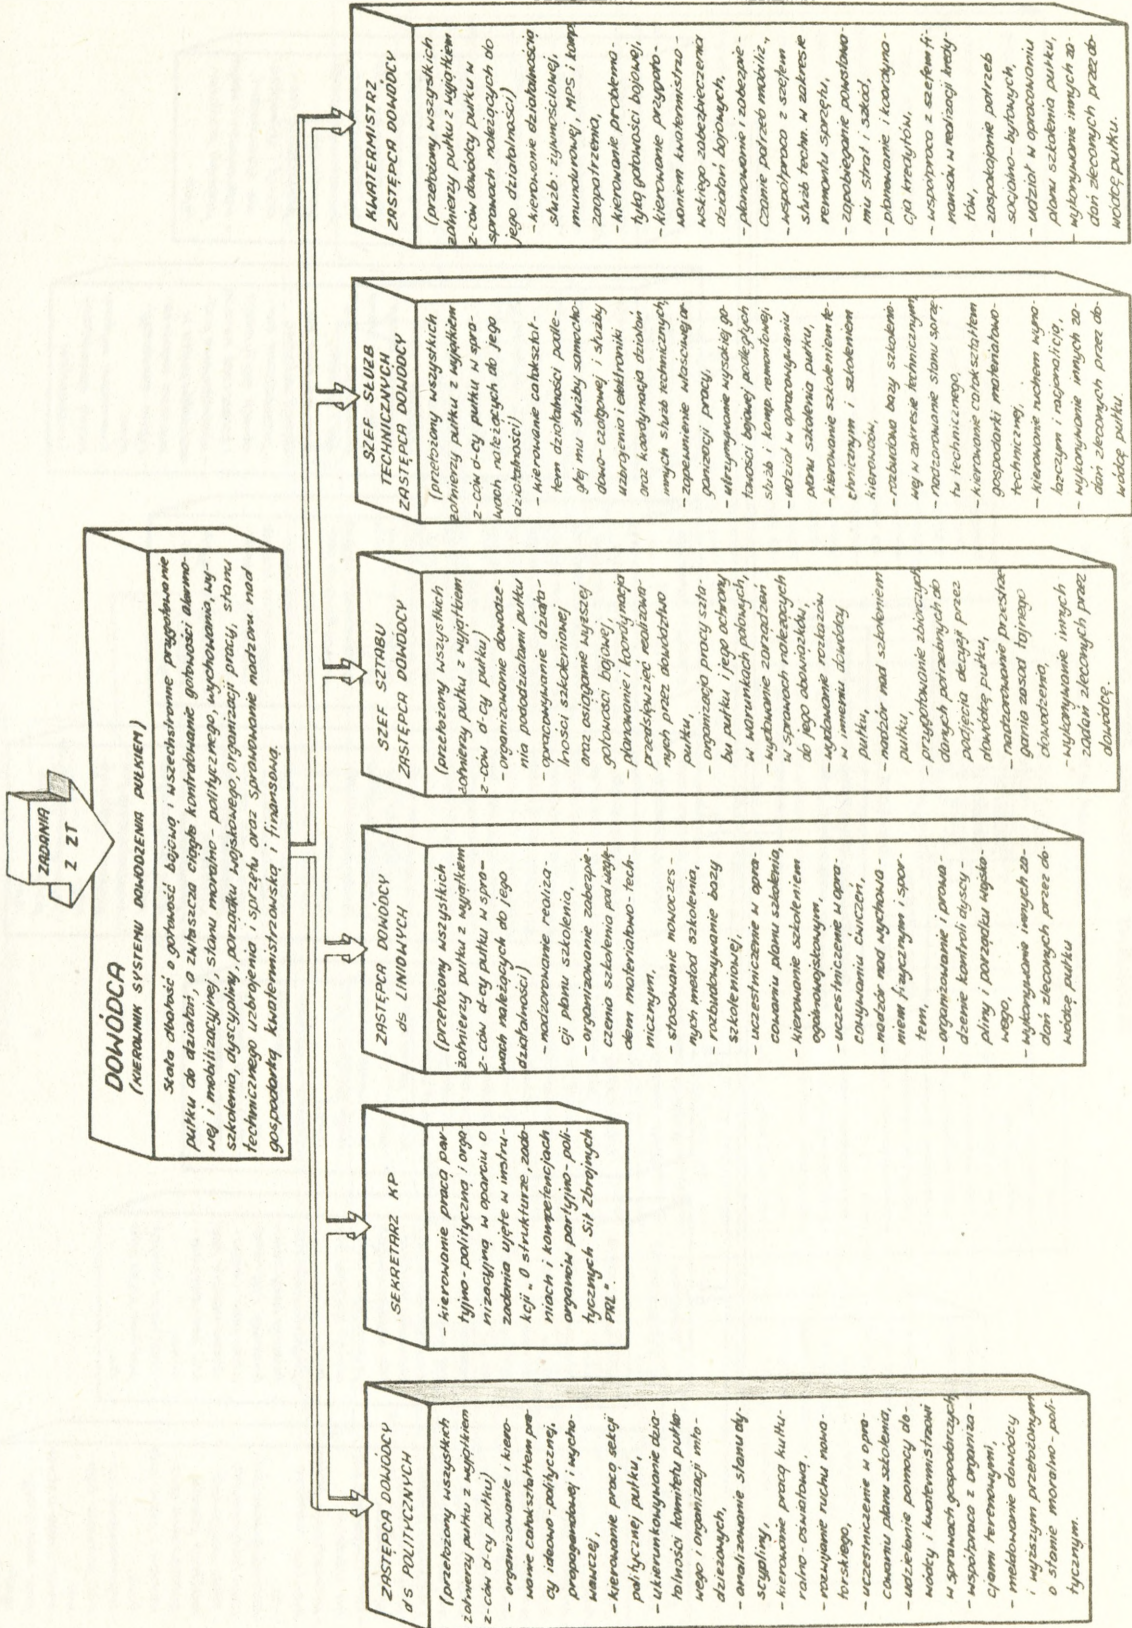 ZADANIA
Z ZT
DOWÓDCA
(KIEROWNIK SYSTEMU DOWODZENIA PUŁKIEM)
Stała dbałość o gotowość bojową i wszechstronne przygotowanie
pułku do działań, a zwłaszcza ciągłe kontrolowanie gotowości alarmo-
wej i mobilizacyjnej, stanu moralno-politycznego, wychowania, wy-
szkolenia, dyscypliny, porządku wojskowego, organizacji pracy, stanu
technicznego uzbrojenia i sprzętu oraz sprawowanie nadzoru nad
gospodarką kwatermistrzowską i finansową.
ZASTĘPCA DOWÓDCY
ds POLITYCZNYCH
(przełożony wszystkich
żołnierzy pułku z wyjątkiem
z-ców d-cy pułku)
- organizowanie i kiero-
wanie całokształtem pra-
cy ideowo-politycznej,
propagandowej i wycho-
wawczej,
- kierowanie pracą sekcji
politycznej pułku,
- ukierunkowywanie dzia-
łalności komitetu pułko-
wego i organizacji mło-
dzieżowych,
- analizowanie stanu dy-
scypliny,
- kierowanie pracą kultu-
ralno-oświatową,
- rozwijanie ruchu nowa-
torskiego,
- uczestniczenie w opra-
cowaniu planu szkolenia,
- udzielanie pomocy do-
wódcy i kwatermistrzowi
w sprawach gospodarczych,
- współpraca z organiza-
cjami terenowymi,
- meldowanie dowódcy
i wyższym przełożonym
o stanie moralno-poli-
tycznym.
SEKRETARZ KP
- kierowanie pracą par-
tyjno-polityczną i orga-
nizacyjną w oparciu o
zadania ujęte w instru-
kcji „O strukturze, zada-
niach i kompetencjach
organów partyjno-poli-
tycznych Sił Zbrojnych
PRL".
ZASTĘPCA DOWÓDCY
ds LINIOWYCH
(przełożony wszystkich
żołnierzy pułku z wyjątkiem
z-ców d-cy pułku w spra-
wach należących do jego
działalności)
- nadzorowanie realiza-
cji planu szkolenia,
- organizowanie zabezpie-
czenia szkolenia pod wzglę-
dem materiałowo-tech-
nicznym,
- stosowanie nowoczes-
nych metod szkolenia,
- rozbudowywanie bazy
szkoleniowej,
- uczestniczenie w opra-
cowaniu planu szkolenia,
- kierowanie szkoleniem
ogólnowojskowym,
- uczestniczenie w opra-
cowywaniu ćwiczeń,
- nadzór nad wychowa-
niem fizycznym i spor-
tem,
- organizowanie i prowa-
dzenie kontroli dyscy-
pliny i porządku wojsko-
wego,
- wykonywanie innych za-
dań zleconych przez do-
wódcę pułku
SZEF SZTABU
ZASTĘPCA DOWÓDCY
(przełożony wszystkich
żołnierzy pułku z wyjątkiem
z-ców d-cy pułku)
- organizowanie dowodze-
nia pododdziałami pułku
- opracowywanie działa-
lności szkoleniowej
oraz osiąganie wyższej
gotowości bojowej,
- planowanie i koordynacja
przedsięwzięć realizowa-
nych przez dowództwo
pułku,
- organizacja pracy szta-
bu pułku i jego ochrony
w warunkach polowych,
- wydawanie zarządzeń
w sprawach należących
do jego obowiązków,
- wydawanie rozkazów
w imieniu dowódcy
pułku,
- nadzór nad szkoleniem
pułku,
- przygotowanie zbiorczych
danych potrzebnych do
podjęcia decyzji przez
dowódcę pułku,
- nadzorowanie przestrze-
gania zasad tajnego
dowodzenia,
- wykonywanie innych
zadań zleconych przez
dowódcę.
SZEF SŁUŻB
TECHNICZNYCH
ZASTĘPCA DOWÓDCY
(przełożony wszystkich
żołnierzy pułku z wyjątkiem
z-ców d-cy pułku w spra-
wach należących do jego
działalności)
- kierowanie całokształ-
tem działalności podle-
głej mu służby samocho-
dowo-czołgowej i służby
uzbrojenia i elektroniki
oraz koordynacja działań
innych służb technicznych,
- zapewnienie właściwej or-
ganizacji pracy,
- utrzymywanie wysokiej go-
towości bojowej podległych
służb i komp. remontowej
- udział w opracowywaniu
planu szkolenia pułku,
- kierowanie szkoleniem te-
chnicznym i szkoleniem
kierowców,
- rozbudowa bazy szkolenio-
wej w zakresie technicznym,
- nadzorowanie stanu sprzę-
tu technicznego,
- kierowanie całokształtem
gospodarki materiałowo-
technicznej,
- kierowanie ruchem wyna-
lazczym i racjonalizacją,
- wykonywanie innych za-
dań zleconych przez do-
wódcę pułku.
KWATERMISTRZ
ZASTĘPCA DOWÓDCY
(przełożony wszystkich
żołnierzy pułku z wyjątkiem
z-ców dowódcy pułku w
sprawach należących do
jego działalności)
- kierowanie działalnością
służb: żywnościowej,
mundurowej, MPS i komp
zaopatrzenia,
- kierowanie problema-
tyką gotowości bojowej,
- kierowanie przygoto-
waniem kwatermistrzo-
wskiego zabezpieczenia
działań bojowych,
- planowanie i zabezpie-
czanie potrzeb mobiliz.,
- współpraca z szefem
służb techn. w zakresie
remontu sprzętu,
- zapobieganie powstawa-
niu strat i szkód,
- planowanie i koordyna-
cja kredytów,
- współpraca z szefem fi-
nansów w realizacji kredy-
tów,
- zaspokajanie potrzeb
socjalno-bytowych,
- udział w opracowaniu
planu szkolenia pułku,
- wykonywanie innych za-
dań zleconych przez do-
wódcę pułku.